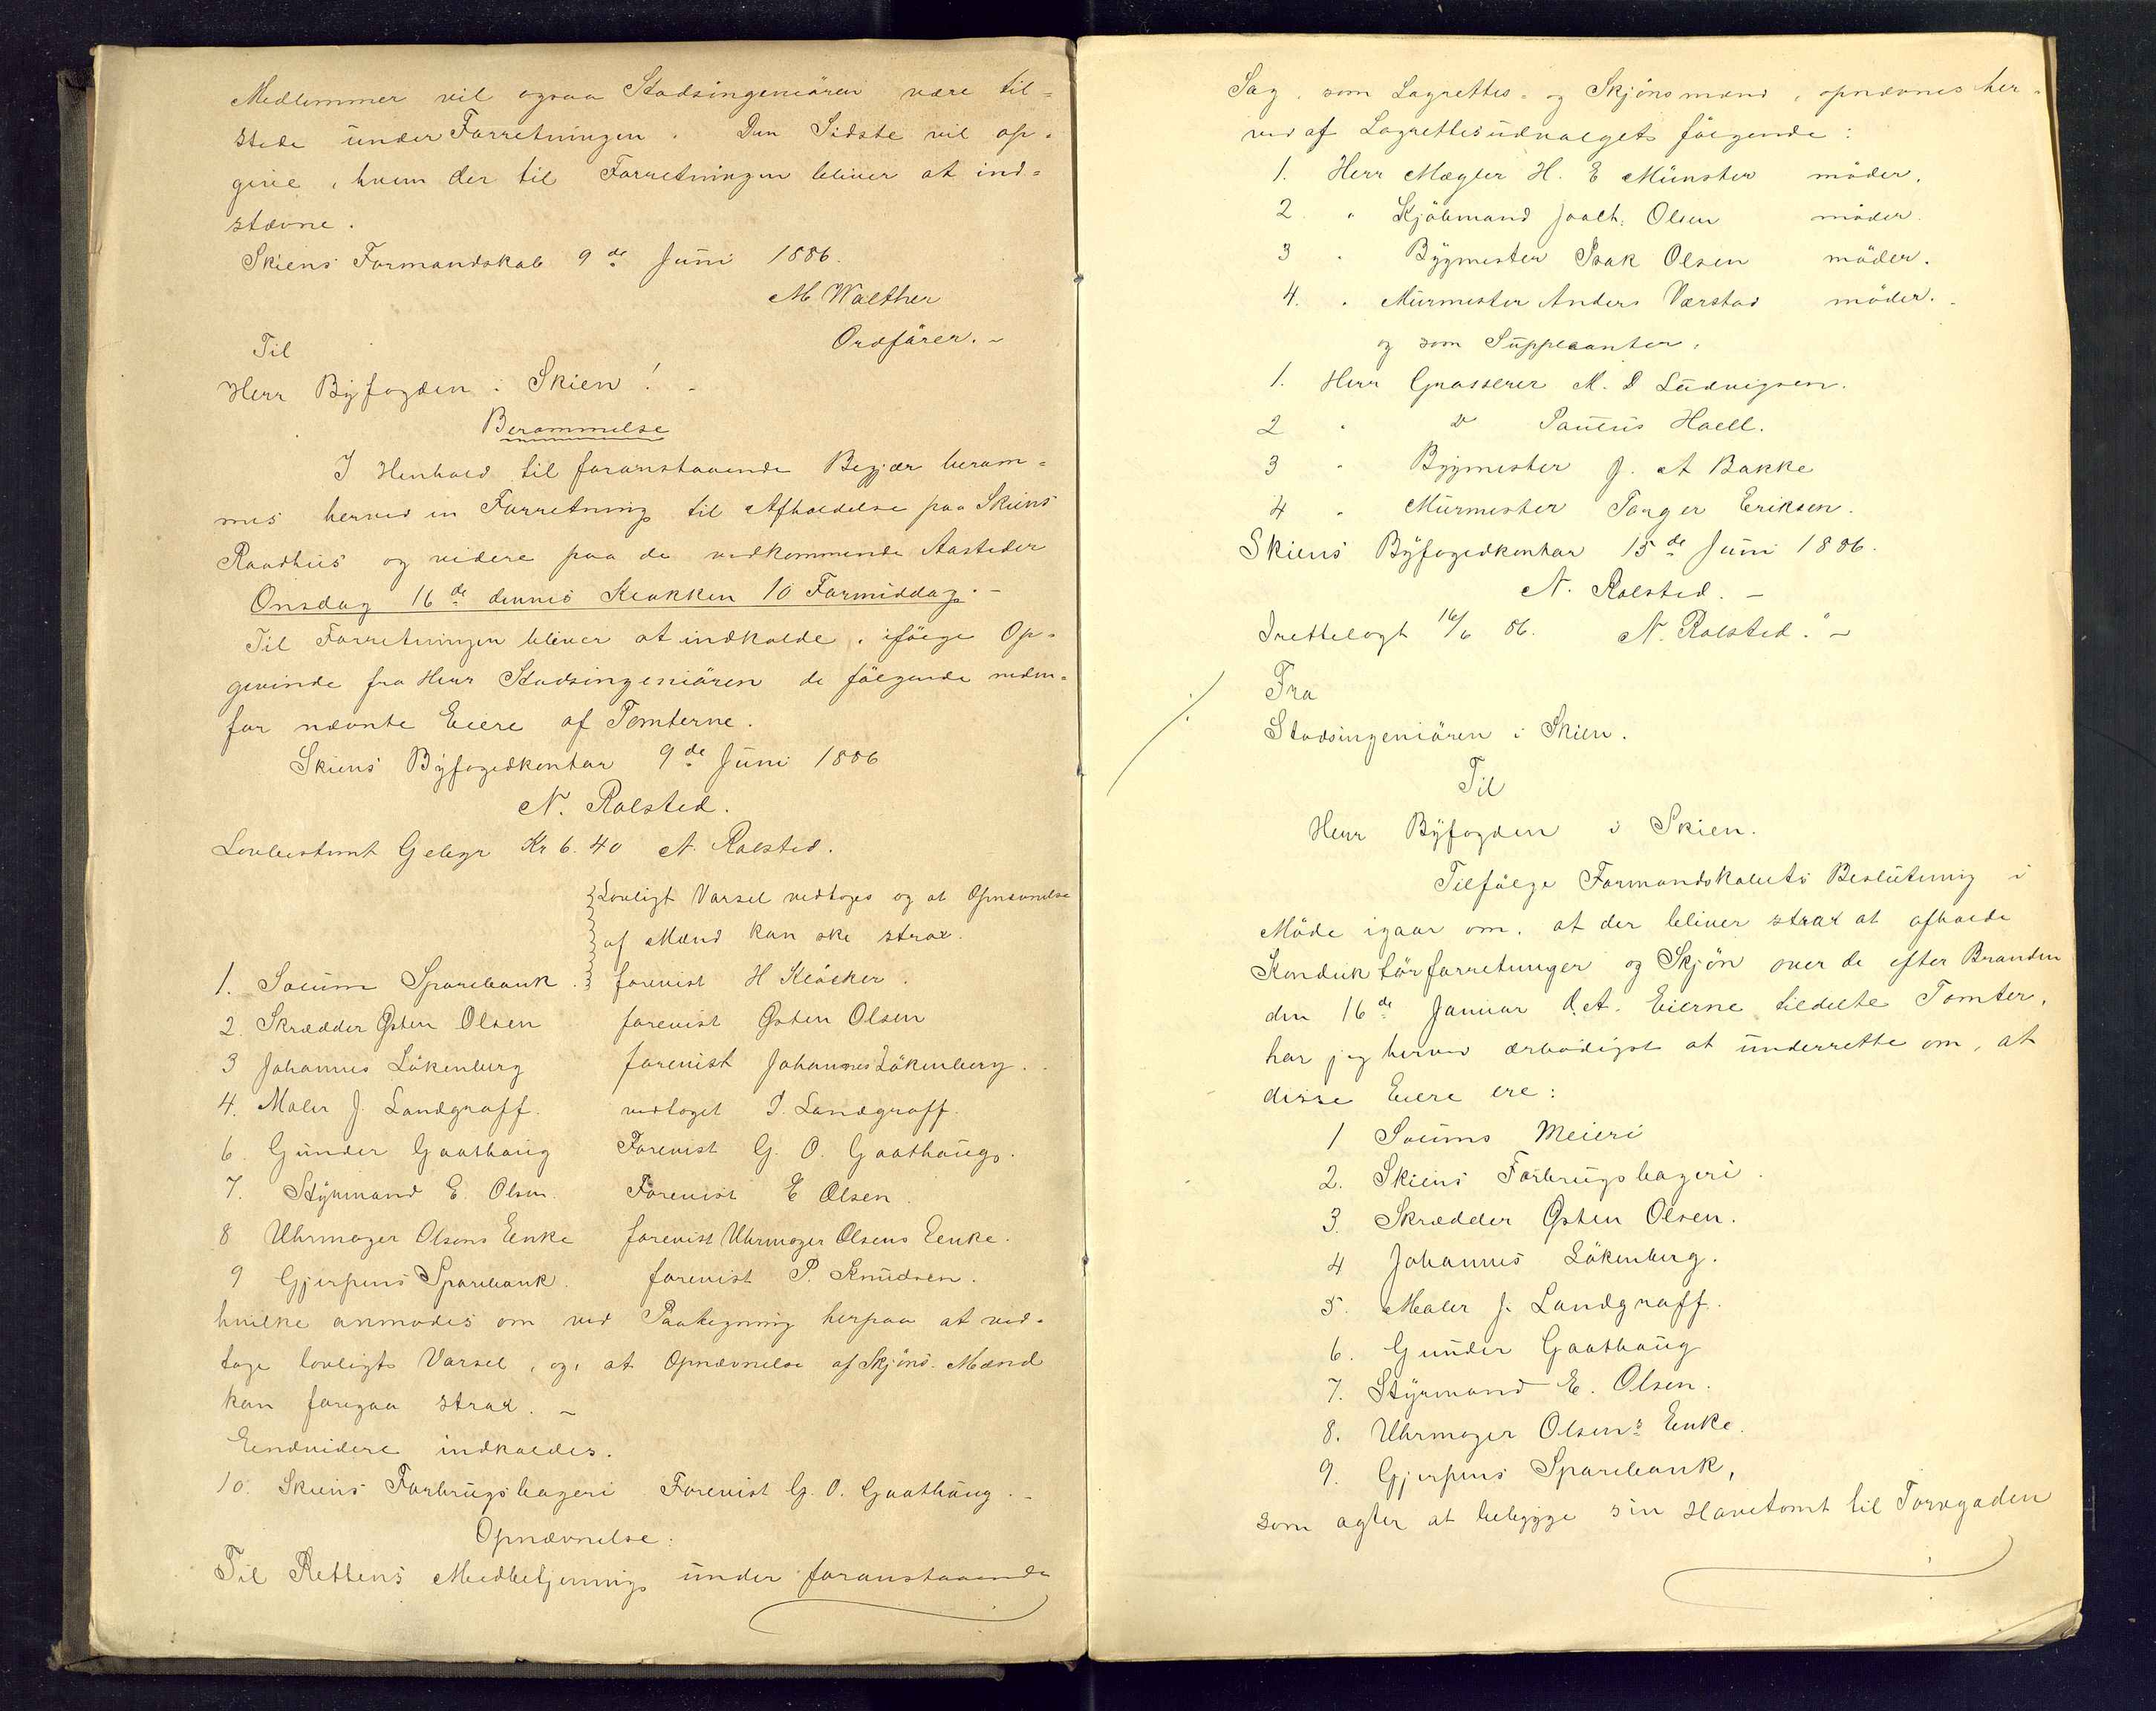 Medlemmer vil ogsaa Stadsingeniören være til-
stede under Forretningen. Den Sidste vil op-
give, hvem der til Forretningen bliver at ind-
stævne.
Skiens Formandskab 9de Juni 1886.
M. Walther
Ordförer. -
Til
Herr Byfogden i Skien! -
Berammelse
I Henhold til foranstaaende Begjær beram-
mes herved en Forretning til Afholdelse paa Skiens
Raadhus og videre paa de vedkommende Aasteder
Onsdag 16de dennes Klokken 10 Formiddag. -
Til Forretningen bliver at indkalde, ifölge Op-
givende fra Herr Stadsingeniören de fölgende neden-
for nævnte Eiere af Tomterne.
Skiens Byfogedkontor 9de Juni 1886
N. Rolsted.
Lovbestemt Gebyr Kr 6.40 N. Rolsted.
Lovligt Varsel vedtages og at Opnævnelse
af Mænd kan ske strax.
1. Solum Sparebank. forevist H Klöcker.
2. Skrædder Østen Olsen forevist Østen Olsen
3 Johannes Lökenberg forevist Johannes Lökenberg.
4. Maler J. Landgraff. vedtaget J. Landgraff.
6. Gunder Gaathaug Forevist G. O. Gaathaug.
7. Styrmand E. Olsen. Forevist E Olsen.
8 Uhrmager Olsens Enke forevist Uhrmager Olsens Enke.
9 Gjerpens Sparebank. forevist P. Knudsen.
hvilke anmodes om ved Paategning herpaa at ved-
tage lovligt Varsel, og, at Opnævnelse af Skjöns-Mænd
kan foregaa strax. -
Endvidere indkaldes.
10. Skiens Forbrugsbageri Forevist G. O. Gaathaug. -
Opnævnelse:
Til Rettens Medbetjening under foranstaaende
Sag, som Lagrettes- og Skjönsmænd, opnævnes her-
ved af Lagrettesudvalget fölgende:
1. Herr Mægler H. E Münster möder.
2 " Kjöbmand Joach: Olsen möder.
3 " Bygmester Isak Olsen möder.
4. " Murmester Anders Værstad möder. -
og som Suppleanter:
1. Herr Grosserer M. D Ludvigsen.
2 " D Paulus Holl.
3 " Bygmester J. A Bakke
4 " Murmester Torger Eriksen.
Skiens Byfogedkontor 15de Juni 1886.
N. Rolsted. -
Irettelagt 16/6 86. N. Rolsted." -
Fra
Stadsingeniören i Skien.
Til
Herr Byfogden i Skien.
Tilfölge Formandskabets Beslutning i
Möde igaar om, at der bliver strax at afholde
Konduktörforretninger og Skjön over de efter Branden
den 16de Januar d.A. Eierne tildelte Tomter,
har jeg herved ærbödigst at underrette om, at
disse Eiere ere:
1 Solums Meieri
2. Skiens Forbrugsbageri.
3. Skrædder Østen Olsen.
4 Johannes Lökenberg.
5. Maler J. Landgraff.
6. Gunder Gaathaug
7. Styrmand E. Olsen.
8. Uhrmager Olsens Enke.
9. Gjerpens Sparebank,
som agter at bebygge sin Havetomt til Torvgaden